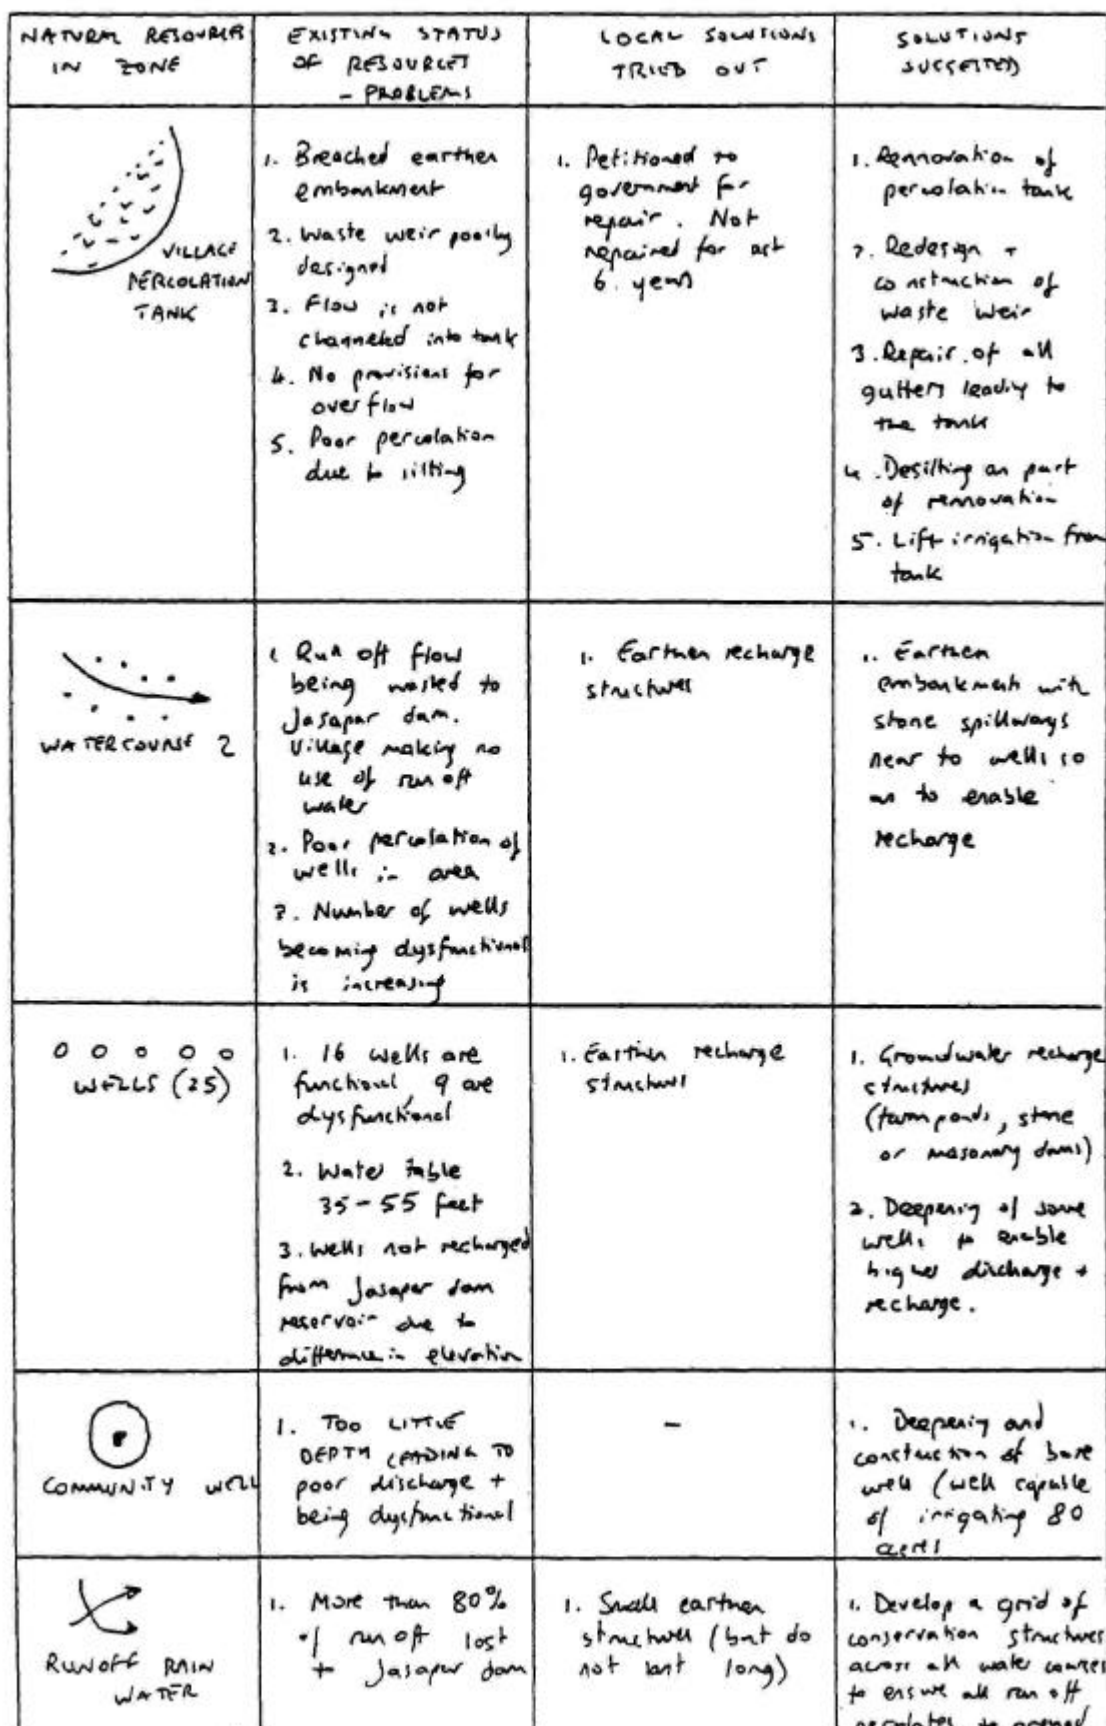 NATURAL RESOURCES
IN ZONE
EXISTING STATUS
OF RESOURCES
- PROBLEMS
LOCAL SOLUTIONS
TRIED OUT
SOLUTIONS
SUGGESTED
VILLAGE
PERCOLATION
TANK
1. Breached earthen
embankment
2. Waste weir poorly
designed
3. Flow is not
channeled into tank
4. No provisions for
overflow
5. Poor percolation
due to silting
1. Petitioned to
government for
repair. Not
repaired for ast
6. years
1. Rennovation of
percolation tank
2. Redesign +
construction of
waste weir
3. Repair of all
gutters leading to
the tank
4. Desilting as part
of rennovation
5. Lift irrigation from
tank
WATERCOURSE 2
1 Run off flow
being wasted to
Jasapar dam.
Village making no
use of run off
water
2. Poor percolation of
wells in area
3. Number of wells
becoming dysfunctional
is increasing
1. Earthen recharge
structures
1. Earthen
embankments with
stone spillways
near to wells so
as to enable
recharge
WELLS (25)
1. 16 wells are
functional, 9 are
dysfunctional
2. Water table
35-55 feet
3. Wells not recharged
from Jasapar dam
reservoir due to
difference in elevation
1. Earthen recharge
structures
1. Groundwater recharge
structures
(farm ponds, stone
or masonary dams)
2. Deepening of some
wells to enable
higher discharge +
recharge.
COMMUNITY WELL
1. TOO LITTLE
DEPTH LEADING TO
poor discharge +
being dysfunctional
-
1. Deepening and
construction of bore
well (well capable
of irrigating 80
acres
RUNOFF RAIN
WATER
1. More than 80%
of run off lost
to Jasapar dam
1. Small earthen
structures (but do
not last long)
1. Develop a grid of
conservation structures
across all water courses
to ensure all run off
percolates to